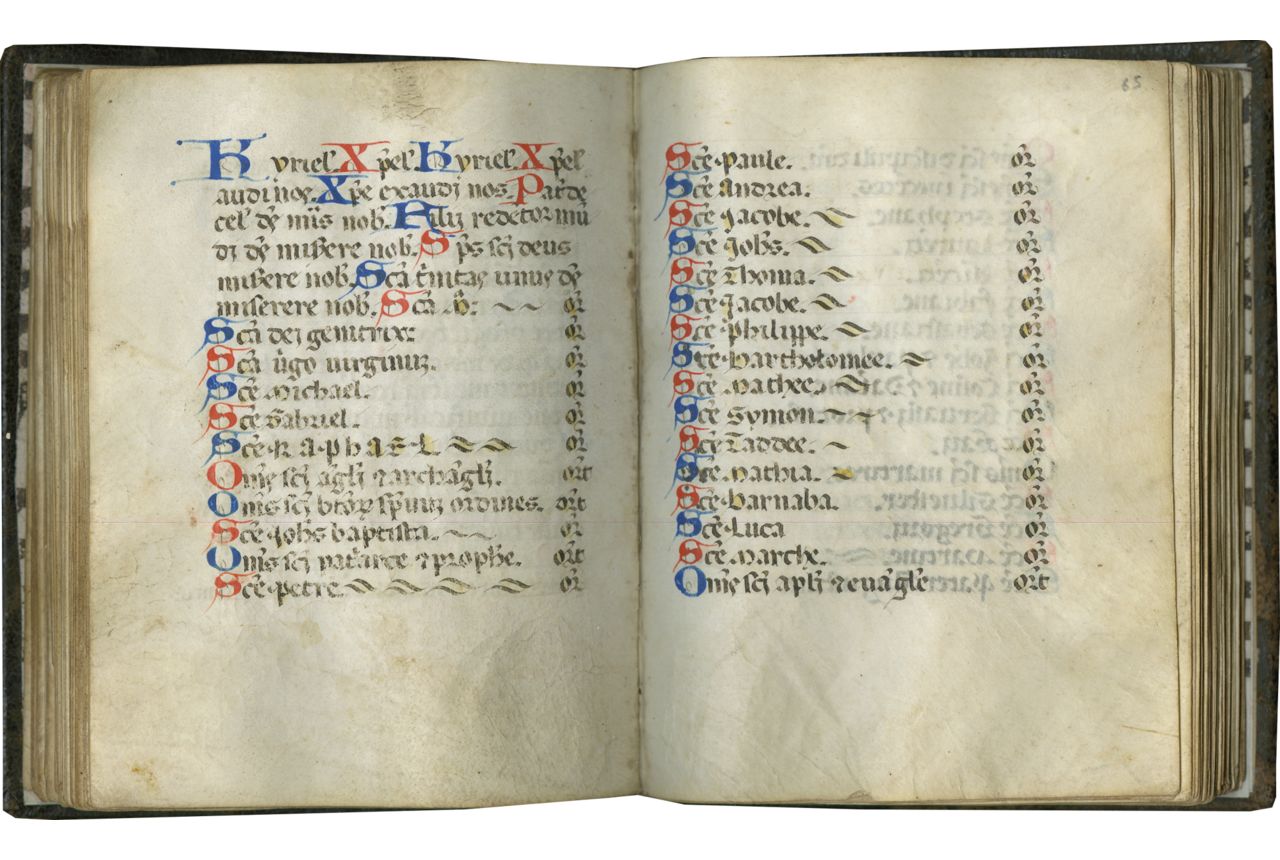 Kyriel' Xp̄el' Kyriel' Xp̄el'
audi noς. Xp̄e exaudi nos. Pat̄ de
cel' d̄s mīs nob̄. Filij redētor mū
di d̄s misere nob̄. Sp̄s sc̄i deus
misere nob̄. Sc̄a t̄nitas unus d̄s
miserere nob̄. Sc̄a .M̄. or̄
Sc̄a dei genitrix: or̄
Sc̄a ūgo uirginuꝫ. or̄
Sc̄e Michael. or̄
Sc̄e Gabriel. or̄
Sc̄e Raphael or̄
Om̄s sc̄i āgl̄i ⁊ archāgl̄i. or̄t
Om̄s sc̄i btōꝝ sp̄uuꝫ ordines. or̄t
Sc̄e Joh̄s baptista. or̄
Om̄s sc̄i pat̄arce ⁊ prophe. or̄t
Sc̄e petre or̄
65
Sc̄e Paule. or̄
Sc̄e Andrea. or̄
Sc̄e Jacobe. or̄
Sc̄e Joh̄s. or̄
Sc̄e Thoma. or̄
Sc̄e Jacobe. or̄
Sc̄e philippe. or̄
Sc̄e Bartholomee. or̄
Sc̄e Mathee. or̄
Sc̄e Symon. or̄
Sc̄e Taddee. or̄
Sc̄e Mathia. or̄
Sc̄e Barnaba. or̄
Sc̄e Luca or̄
Sc̄e Marche. or̄
Om̄s sc̄i apl̄i ⁊ euāgl̄e. or̄t